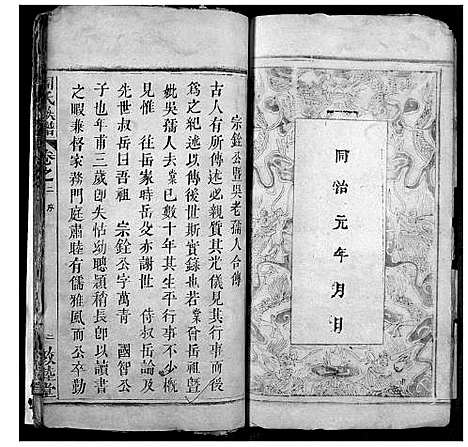 同治元年 月 日
宗銓公暨吳老孺人合傳
古人有所傳述或傳其光儀見其行事
為之紀述以傳後世斯實錄也若業曾岳祖暨
妣吳孺人去業已數十年其生平行事不少概
見惟 往岳家時岳父亦謝世 侍叔岳論及
先世叔岳曰吾祖 宗銓公字萬青 國智公
子也年甫三歲即失怙幼聰穎稍長即以讀書
之暇兼督家務門庭肅睦有儒雅風而公卒勤
氏族譜
卷之二 序
二
敦睦堂